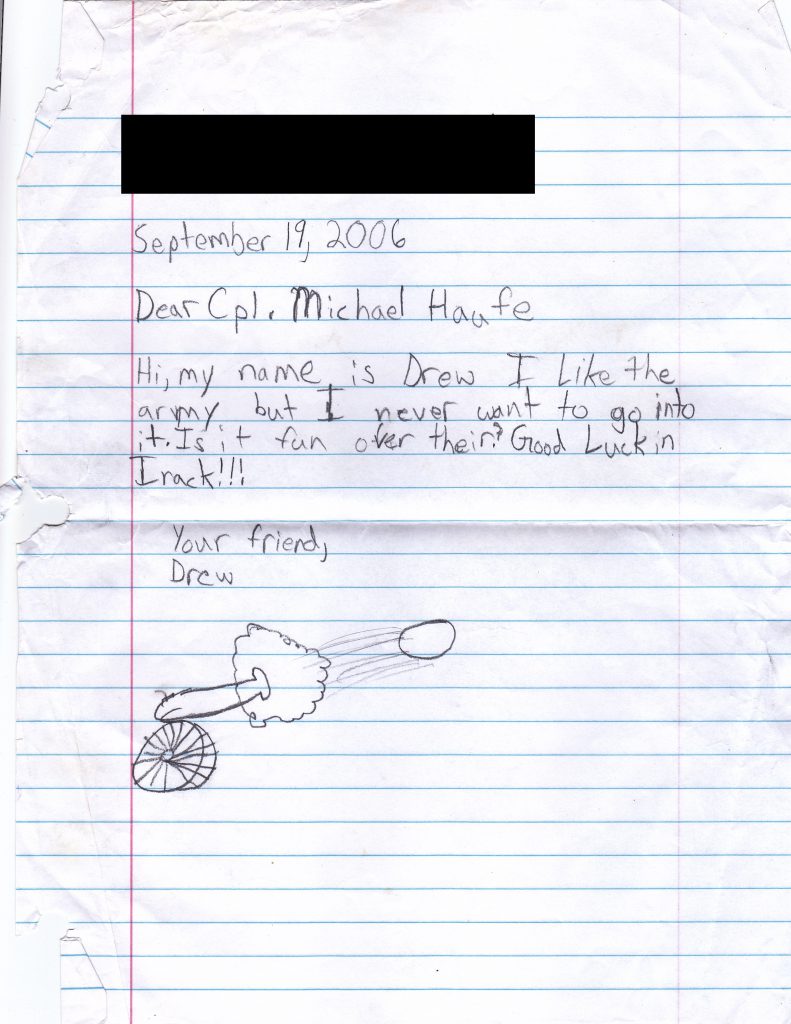 September 19, 2006
Dear Cpl. Michael Haufe
Hi, my name is Drew I Like the
army but I never want to go into
it. Is it fun over their? Good Luck in
Irack!!!
Your friend,
Drew